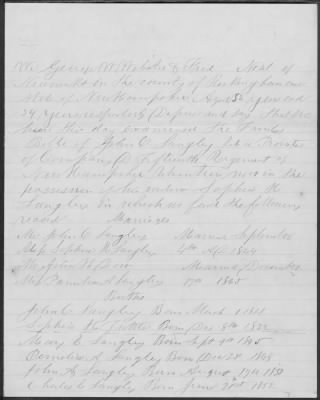 We George W. Webster & Fred Neal of
Newmarket in the county of Rockingham and
State of New Hampshire Aged 52 years and
24 years respectively Depose and say that we
have this day examined the Family
Bible of John C. Langley late a Private
of Company D Fifteenth Regiment of
New Hampshire Volunteers now in the
possession of his widow Sophia H
Langley in which we find the following
record Marriages
Mr John C Langley Married September
Miss Sophia H Langley 4th AD 1844
Mr John H Married December
Miss Langley 17th 1865
Births
John C Langley Born March 1
Sophia H Tuttle Born Dec 8th 1822
Mary E Langley Born Sept 9th 1845
Cornelia A Langley Born Dec 28 1848
John A Langley Born August 17th 1850
Charles C Langley Born June 21st 1852